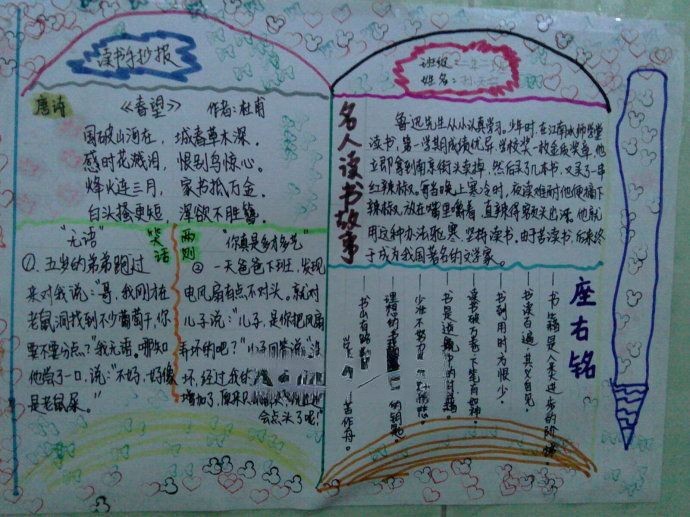 读书手抄报
唐诗
《春望》 作者:杜甫
国破山河在，城春草木深。
感时花溅泪，恨别鸟惊心。
烽火连三月，家书抵万金。
白头搔更短，浑欲不胜簪。
笑话
两则
"无语"
①、五岁的弟弟跑过
来对我说:"哥,我刚才在
老鼠洞找到不少葡萄干,你
要不要分点?"我无语。哪知
他尝了一口,说:"不妈,好像
是老鼠屎。"
"你真是多才多艺"
② 一天爸爸下班,发现
电风扇有点不对头。就对
儿子说:"儿子,是你把风扇
弄坏的吧?"小子回答说:"没
坏,经过我
增加了,原来只
会点头了呢!"
班级:二年二
姓名:
名人读书故事
鲁迅先生从小认真学习。少年时,在江南水师学堂
读书,第一学期成绩优异,学校奖一枚金质奖章,他
立即拿到南京街头卖掉,然后买了几本书,又买了一串
红辣椒。每当晚上寒冷时,夜读难耐,他便摘下
辣椒,放在嘴里嚼着,直辣得额头出汗。他就
用这种办法驱寒,坚持读书。由于苦读书,后来终
于成为我国著名的文学家。
座右铭
——书籍是人类进步的阶梯。
——书读百遍,其义自见。
——书到用时方恨少。
——读书破万卷,下笔如有神。
——书是
——少壮不努力
——理想的 的钥匙
——书山有路
苦作舟。